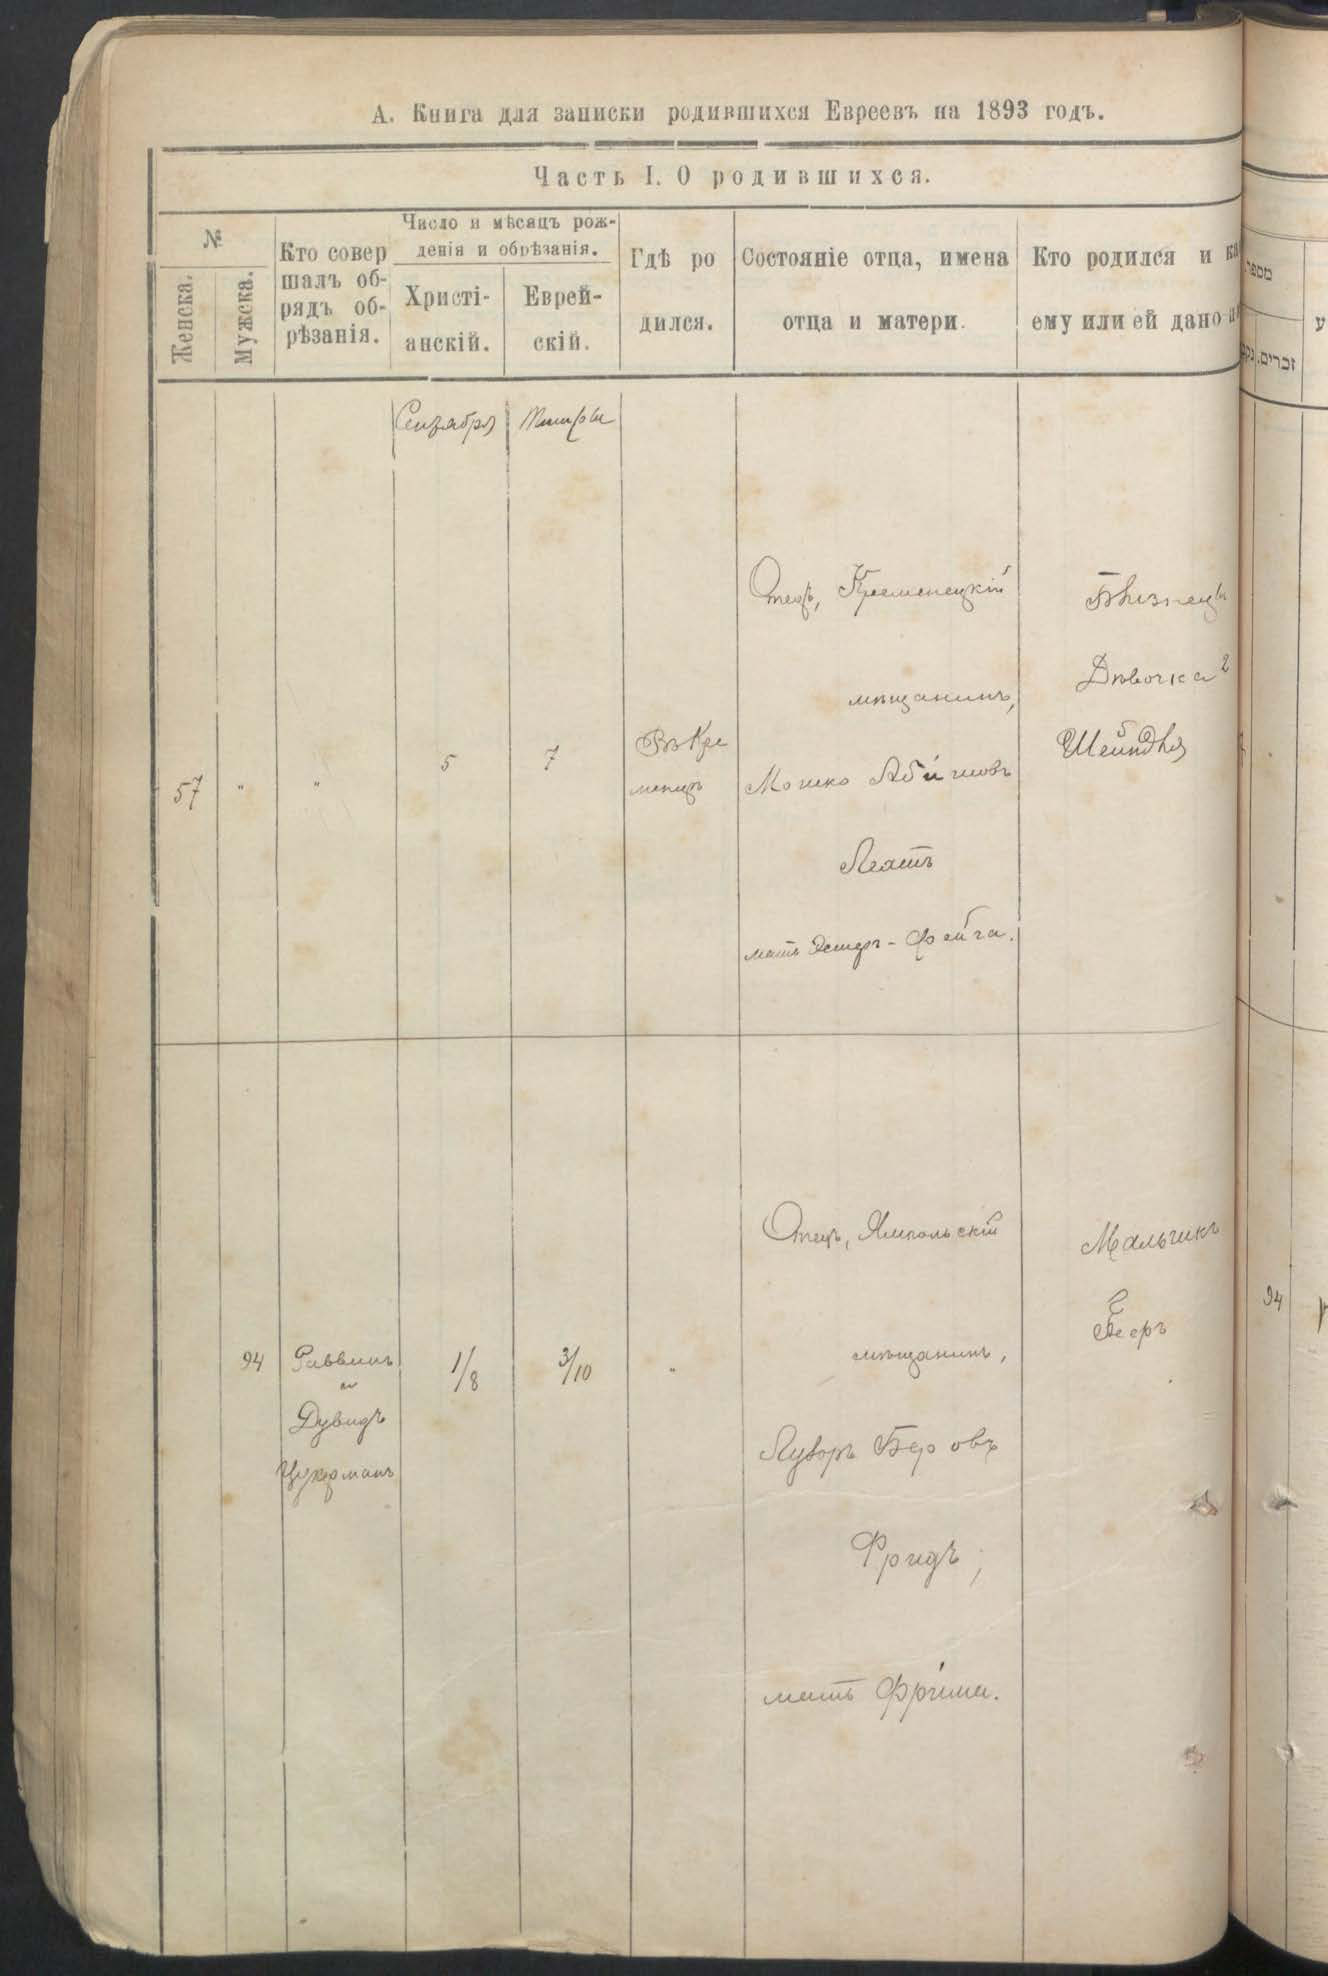 А. Книга для записки родившихся Евреевъ на 1893 годъ.
Часть I. О родившихся.
№
Женска.
Мужска.
Кто совер
шалъ об-
рядъ об-
рѣзанія.
Число и мѣсяцъ рож-
денія и обрѣзанія.
Христі-
анскій.
Еврей-
скій.
Гдѣ ро
дился.
Состояніе отца, имена
отца и матери.
Кто родился и ка
ему или ей дано
Сентября
Тишри
57
"
"
5
7
Въ Кре
менцѣ
Отецъ, Кременецкій
мѣщанинъ,
Мошко
мать Эстеръ-Фейга.
Близнецы
Дѣвочка 2
Шейндля
94
Раввинъ
и
Дувидъ
Цукерманъ
1/8
3/10
"
Отецъ, Ямпольскій
мѣщанинъ,
Лузоръ Беровъ
Фридъ;
мать Фрима.
Мальчикъ
Беръ
מספר
זכרים.
94